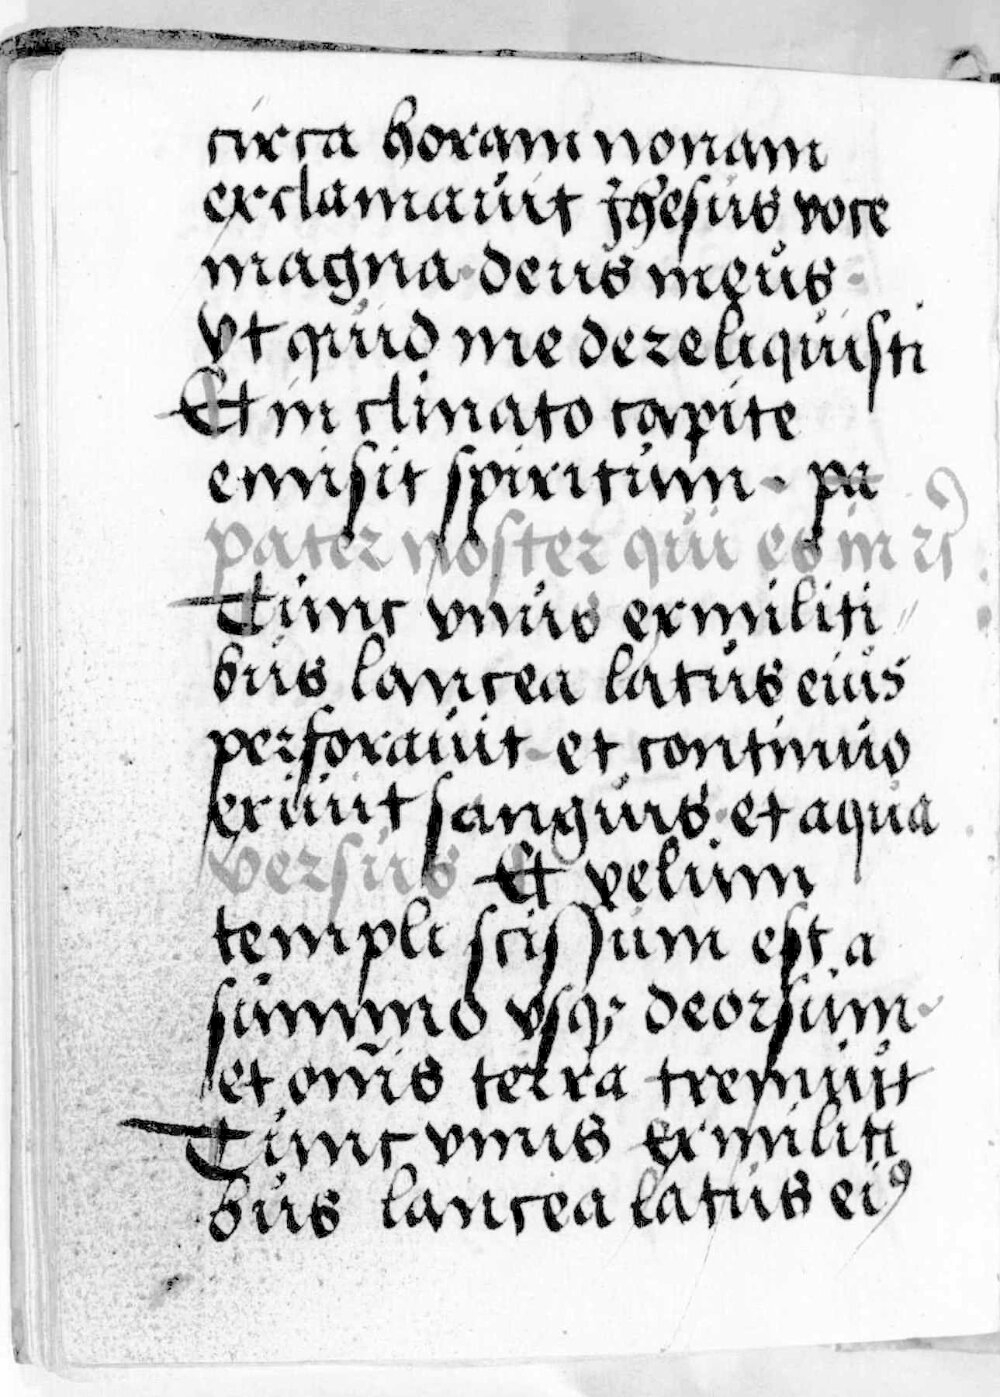 circa horam nonam
exclamauit Jhesus voce
magna deus meus
vt quid me dereliquisti
Et in clinato capite
emisit spiritum. pa
pater noster qui es in
Tunc vnus ex militi
bus lancea latus eius
perforauit et continuo
exiuit sanguis et aqua
versus Et velum
templi scissum est a
summo vsqꝫ deorsum
et om̅is terra tremuit
Tunc vnus ex militi
bus lancea latus eiꝰ